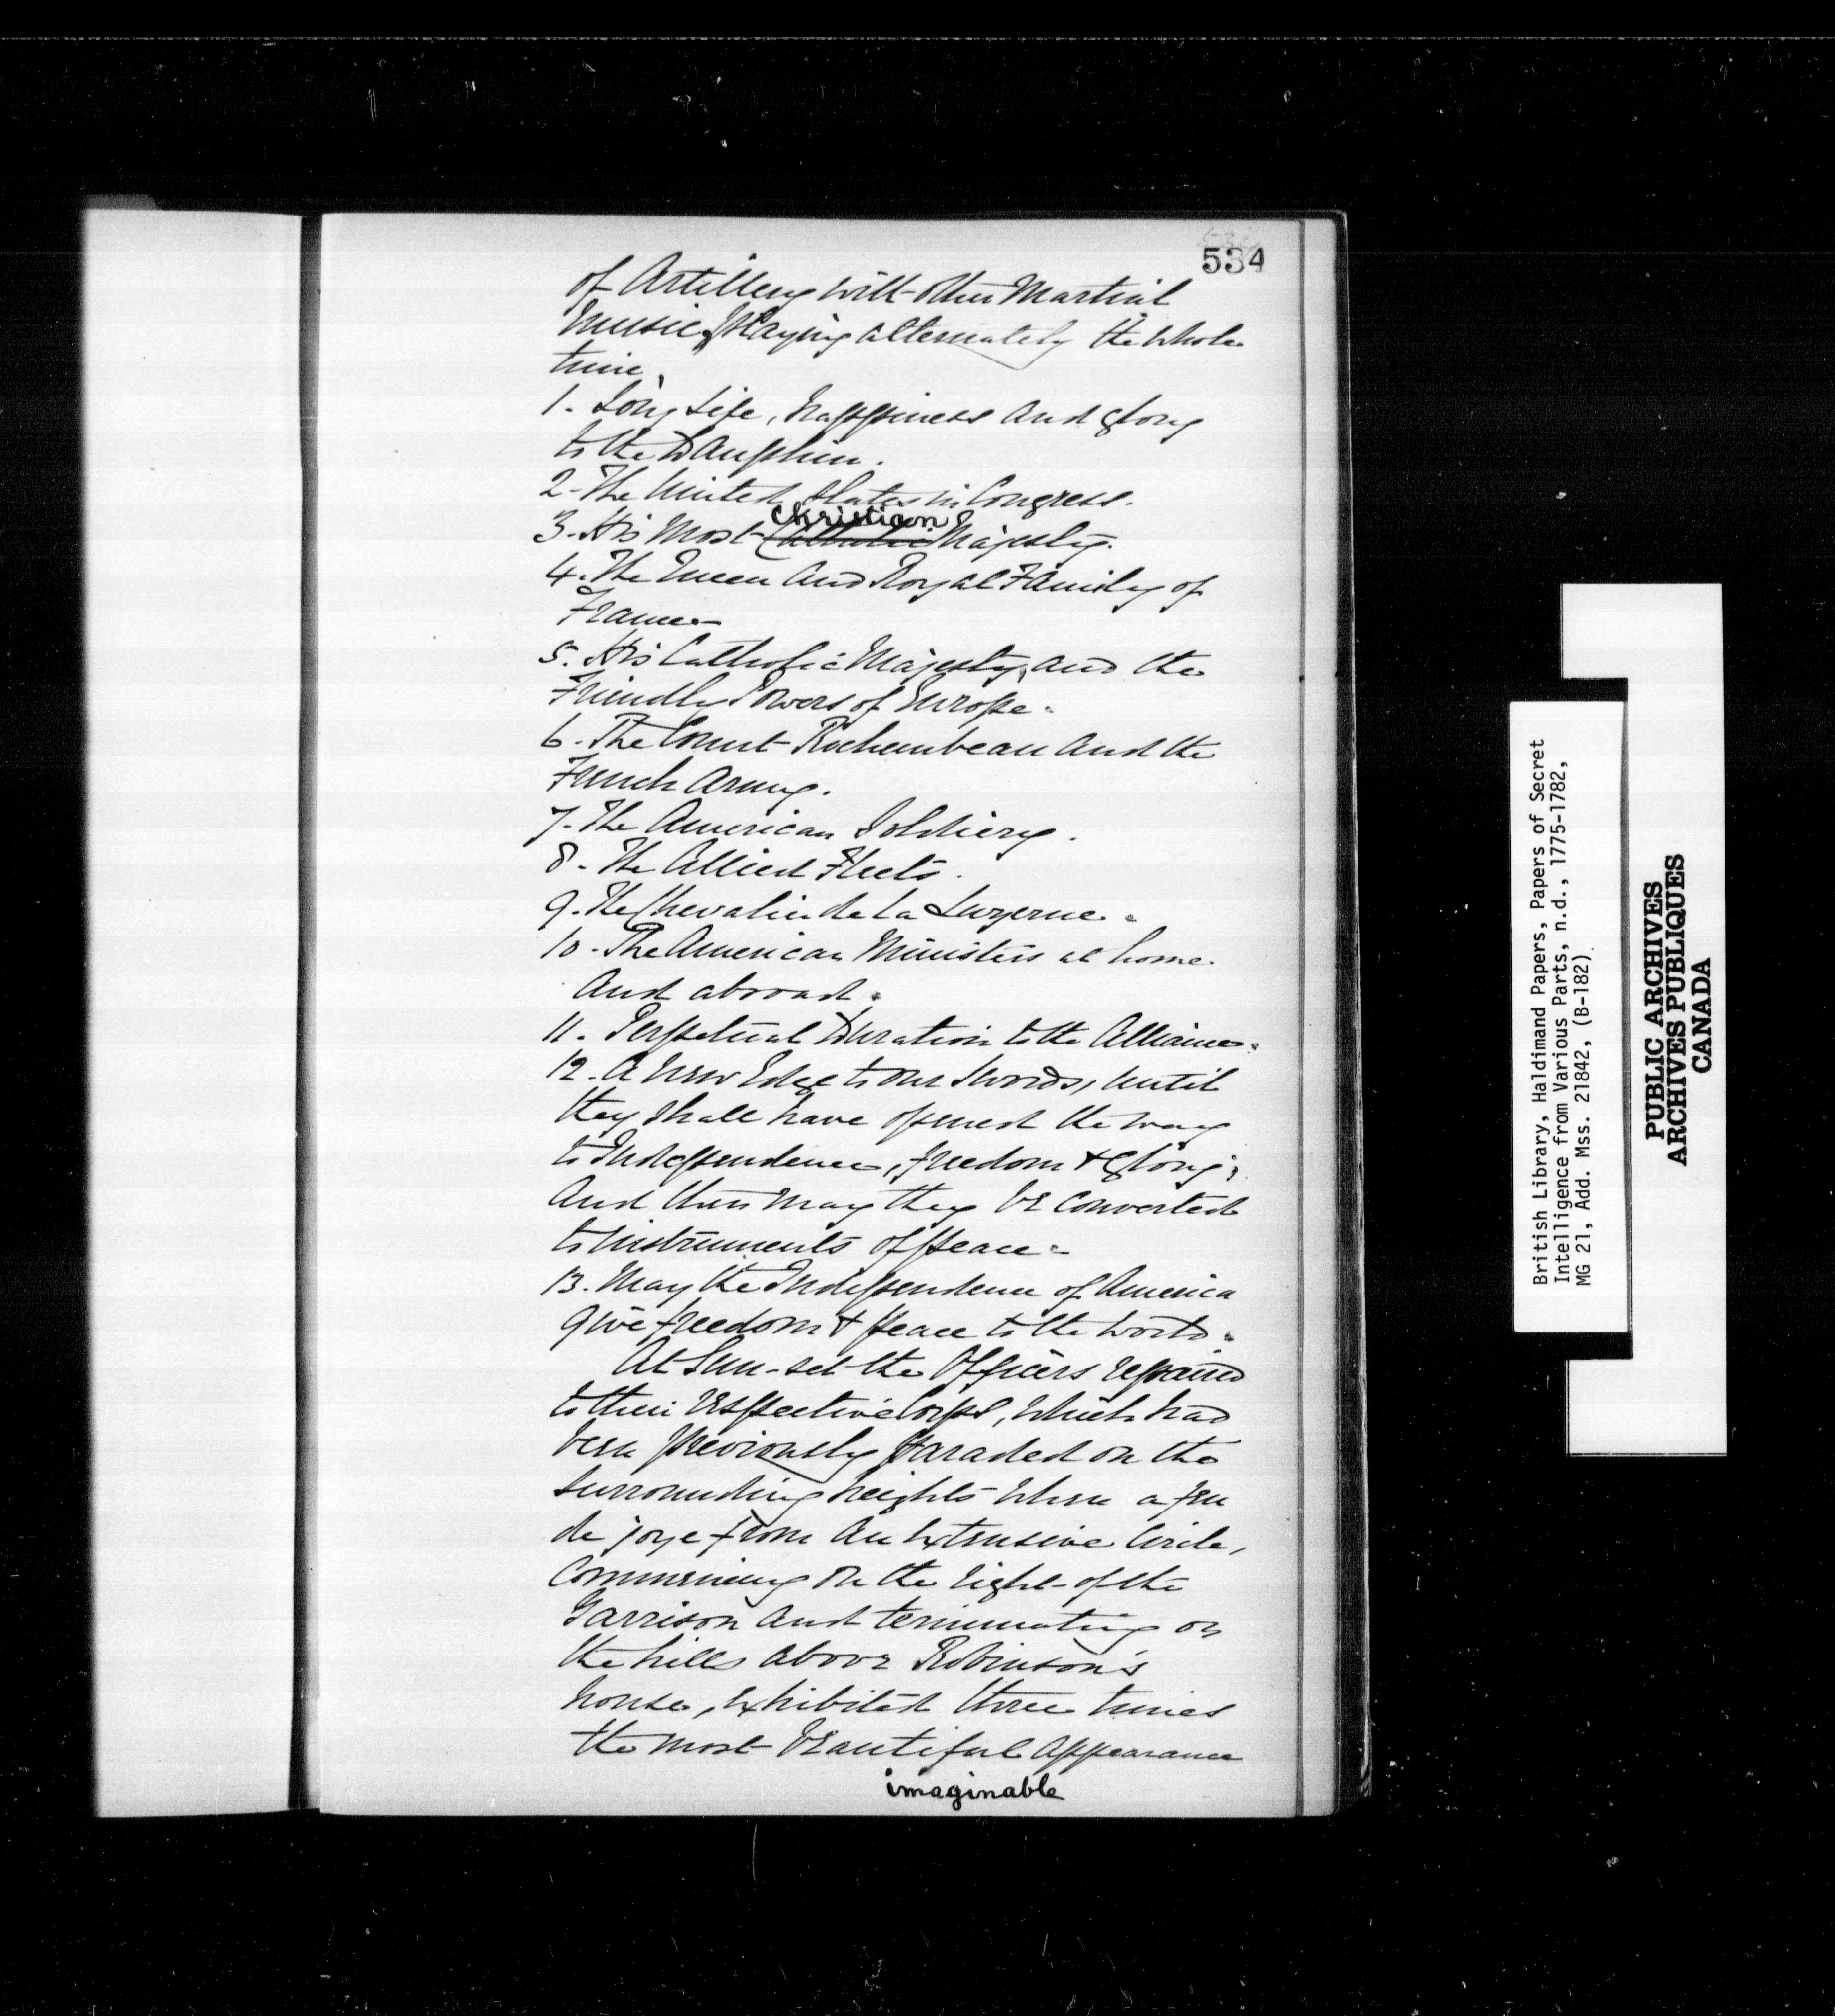 534
of Artillery with other Martial
Music, playing alternately the whole
time,
1. Long Life, happiness and glory
to the Dauphin.
2. The United States in Congress.
Christian
3. His Most Catholic Majesty.
4. The Queen and Royal Family of
France
5. His Catholic Majesty, and the
Friendly Powers of Europe.
6. The Count Rochambeau and the
French Army.
7. The American Soldiery.
8. The Allied Fleets.
9. The Chevalier de la Luzerne.
10. The American Ministers at home
and abroad.
11. Perpetual Duration to the Alliance.
12. A new Edge to our Swords, until
they shall have opened the way
to Independence, freedom & glory;
and then may they be converted
to instruments of peace.
13. May the Independence of America
give freedom & peace to the world.
At Sun-set the Officers repaired
to their respective Corps, which had
been previously paraded on the
surrounding heights where a feu
de joye from an extensive Circle,
Commencing on the right of the
Garrison and terminating on
the hills above Robinson's
house, exhibited three times
the most beautiful appearance
imaginable
British Library, Haldimand Papers, Papers of Secret
Intelligence from Various Parts, n.d., 1775-1782,
MG 21, Add. Mss. 21842, (B-182).
PUBLIC ARCHIVES
ARCHIVES PUBLIQUES
CANADA